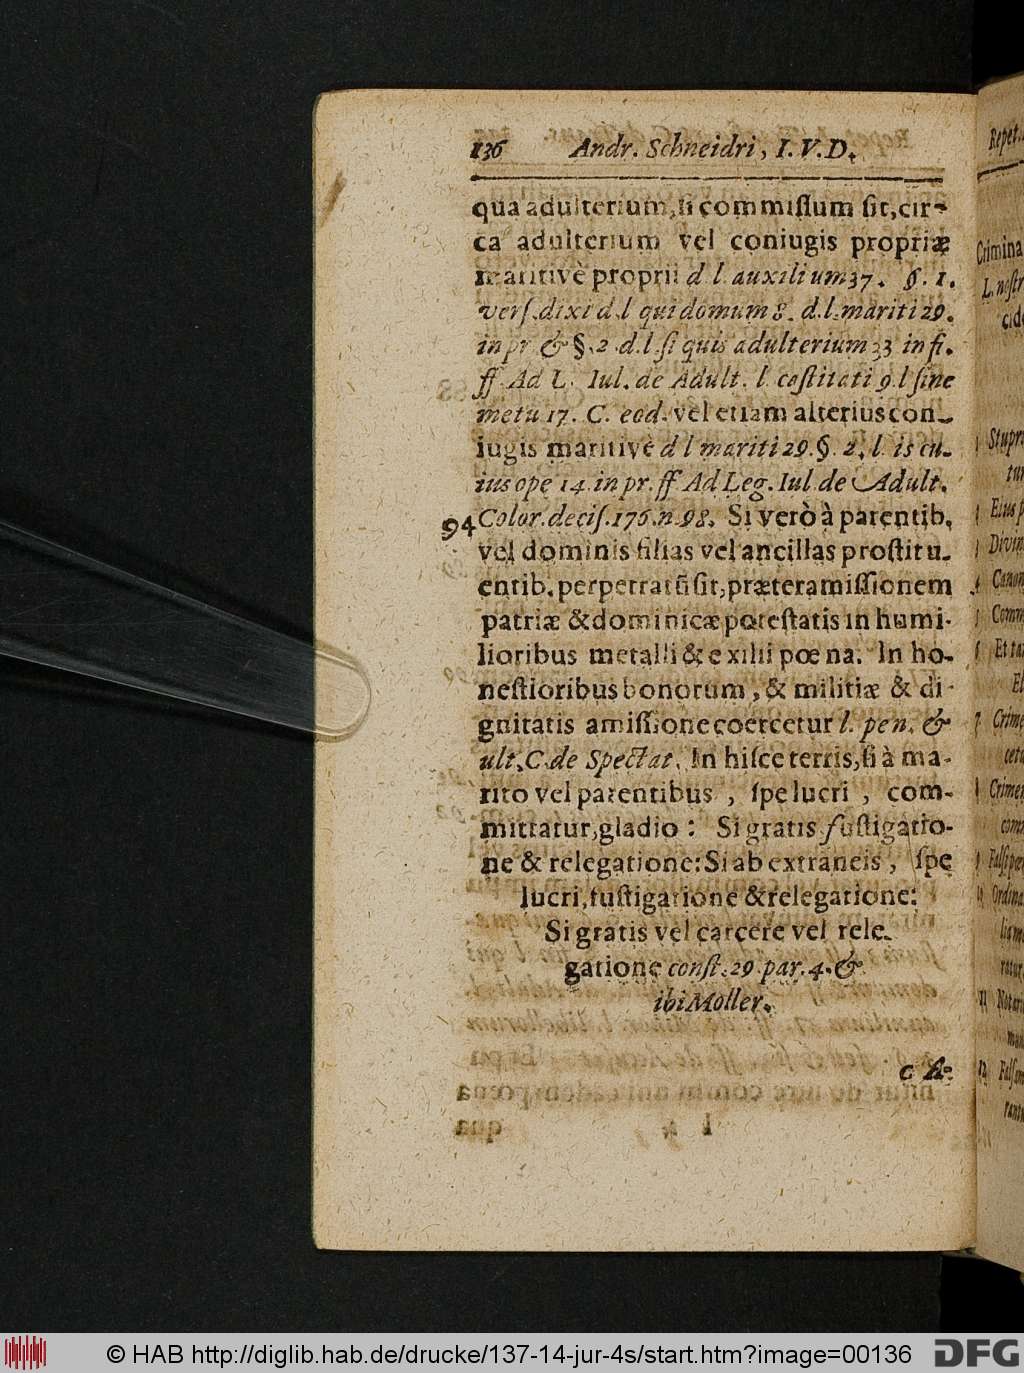 136 Andr. Schneidri, I.V.D.
qua adulterium, ſi commiſſum ſit, cir-
ca adulterium vel coniugis propriæ
maritivè proprii d l. auxilium 37. §. 1.
verſ. dixi d.l qui domum 8. d.l. mariti 29.
in pr & §. 2 d.l. ſi quis adulterium 33 in fi.
ff. Ad L. Iul. de Adult. l. caſtitati 9. l ſine
metu 17. C. eod. vel etiam alterius con-
iugis maritivè d l mariti 29. §. 2, l. is cu-
ius ope 14. in pr. ff Ad Leg. Iul de Adult.
94 Color. deciſ. 176. n. 98. Si verò à parentib.
vel dominis filias vel ancillas proſtitu-
entib. perpetratũ ſit, præter amiſſionem
patriæ & dominicæ poteſtatis in humi-
lioribus metalli & exilii pœna. In ho-
neſtioribus bonorum, & militiæ & di-
gnitatis amiſſione coercetur l. pen. &
ult. C. de Spectat. In hiſce terris, ſi à ma-
rito vel parentibus, ſpe lucri, com-
mittatur, gladio: Si gratis fuſtigatio-
ne & relegatione: Si ab extraneis, ſpe
lucri, fuſtigatione & relegatione:
Si gratis vel carcere vel rele-
gatione conſt. 29 par. 4. &
ibi Moller.
C A-
Repet.
Crimina
L. noſtr
cide
Stupr
Divin
Canon
Comm
Et ta
El
7 Crime
Crime
com
Falſi pœ
Ordina
ratur
11 Notari
12 Falſam
© HAB http://diglib.hab.de/drucke/137-14-jur-4s/start.htm?image=00136 DFG